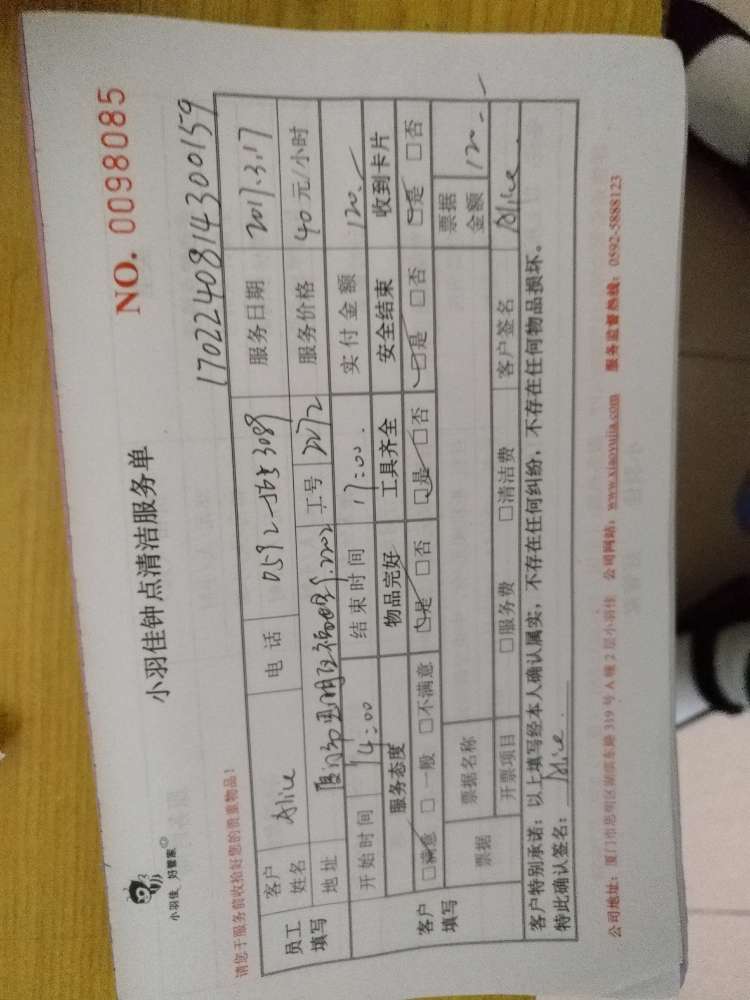 小羽佳 好管家
小羽佳钟点清洁服务单
NO. 0098085
请您于服务前收拾好您的贵重物品!
170224081430015９
员工填写
客户姓名 Alice 电话 0592- 服务日期 2017.3.17
地址 厦门市思明区 2202 工号 2272 服务价格 40元/小时
开始时间 14:00 结束时间 17:00. 实付金额 120.
客户填写
服务态度 物品完好 工具齐全 安全结束 收到卡片
□满意 □一般 □不满意 □是 □否 □是 □否 □是 □否 □是 □否
票据 票据名称 票据金额 120.-
开票项目 □服务费 □清洁费 客户签名 Alice
客户特别承诺:以上填写经本人确认属实,不存在任何纠纷,不存在任何物品损坏。
特此确认签名: Alice.
公司地址:厦门市思明区湖滨东路319号A幢2层小羽佳 公司网站:www.xiaoyujia.com 服务监督热线:0592-5888123